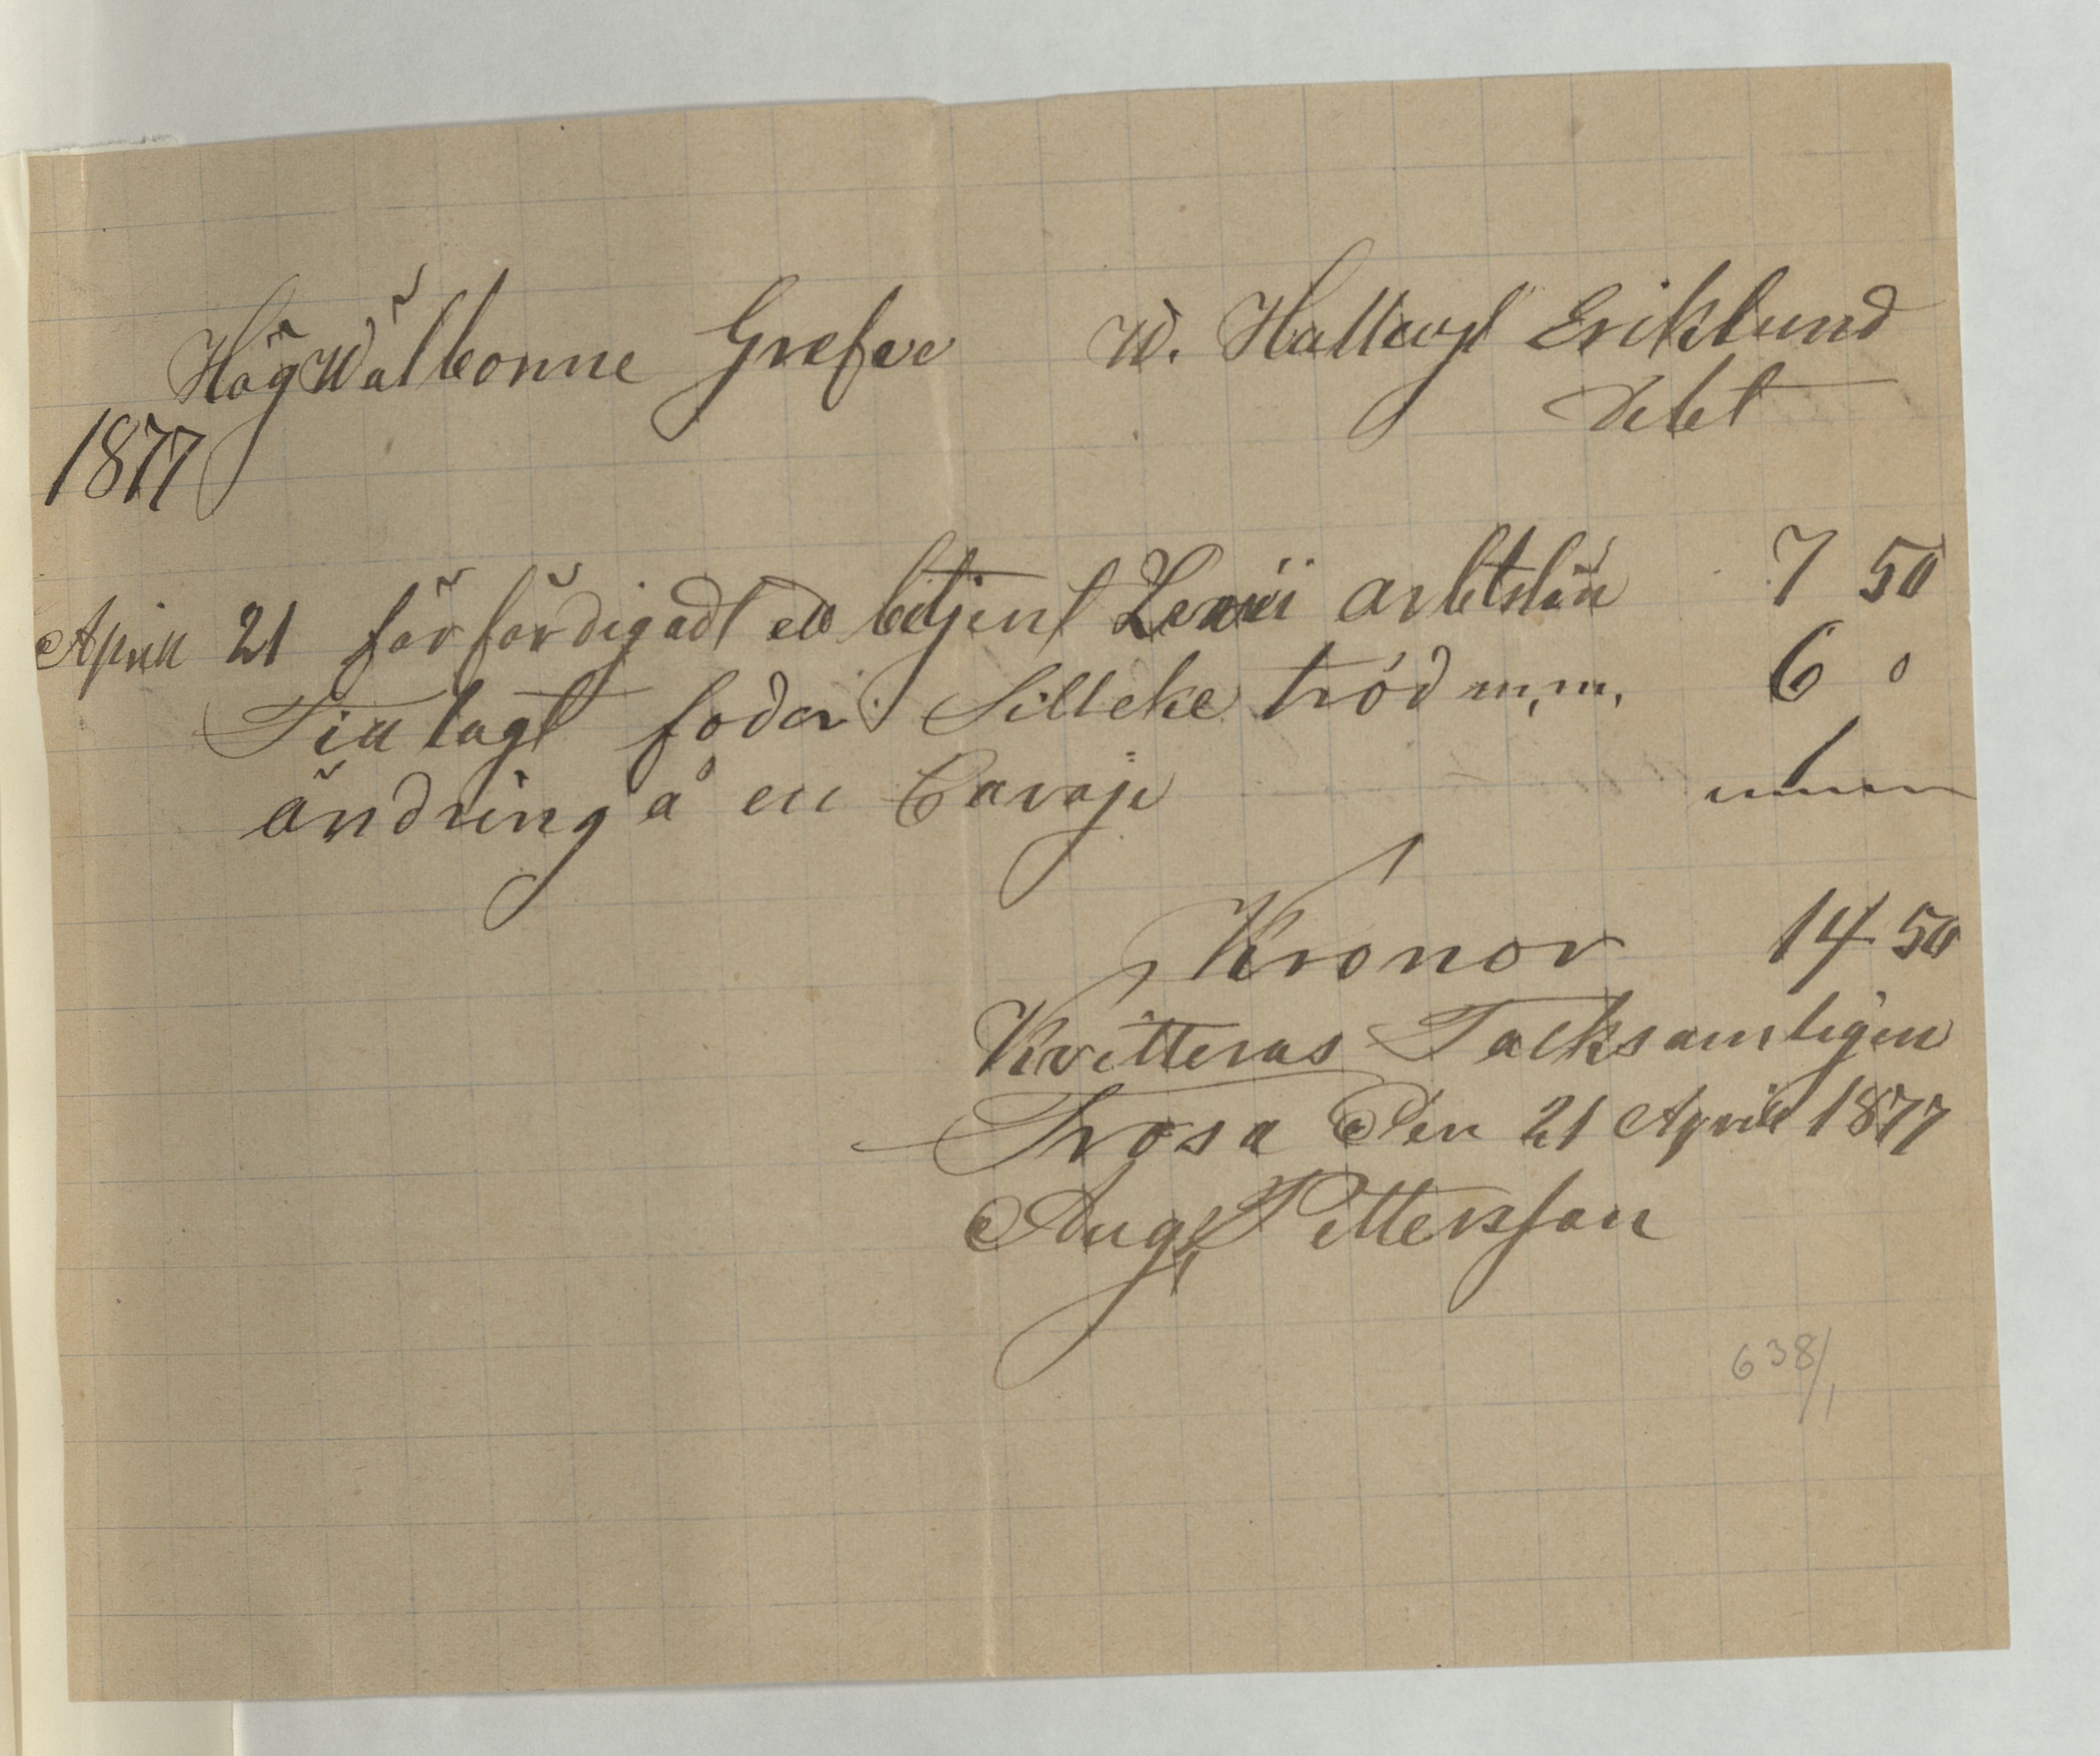 HögWälborne Grefve W. Hallwyl Eriklund
Debet
1877
April 21 förfärdigadt ett betjent Levrii arbetslön 7 50
Till lagt foder Silleke tród m,m, 6 0
ändring å en Cavaje 1
Kronor 14 50
Kvitteras Tacksamligen
Trosa Den 21 April 1877
Aug, Pettersson
638/1